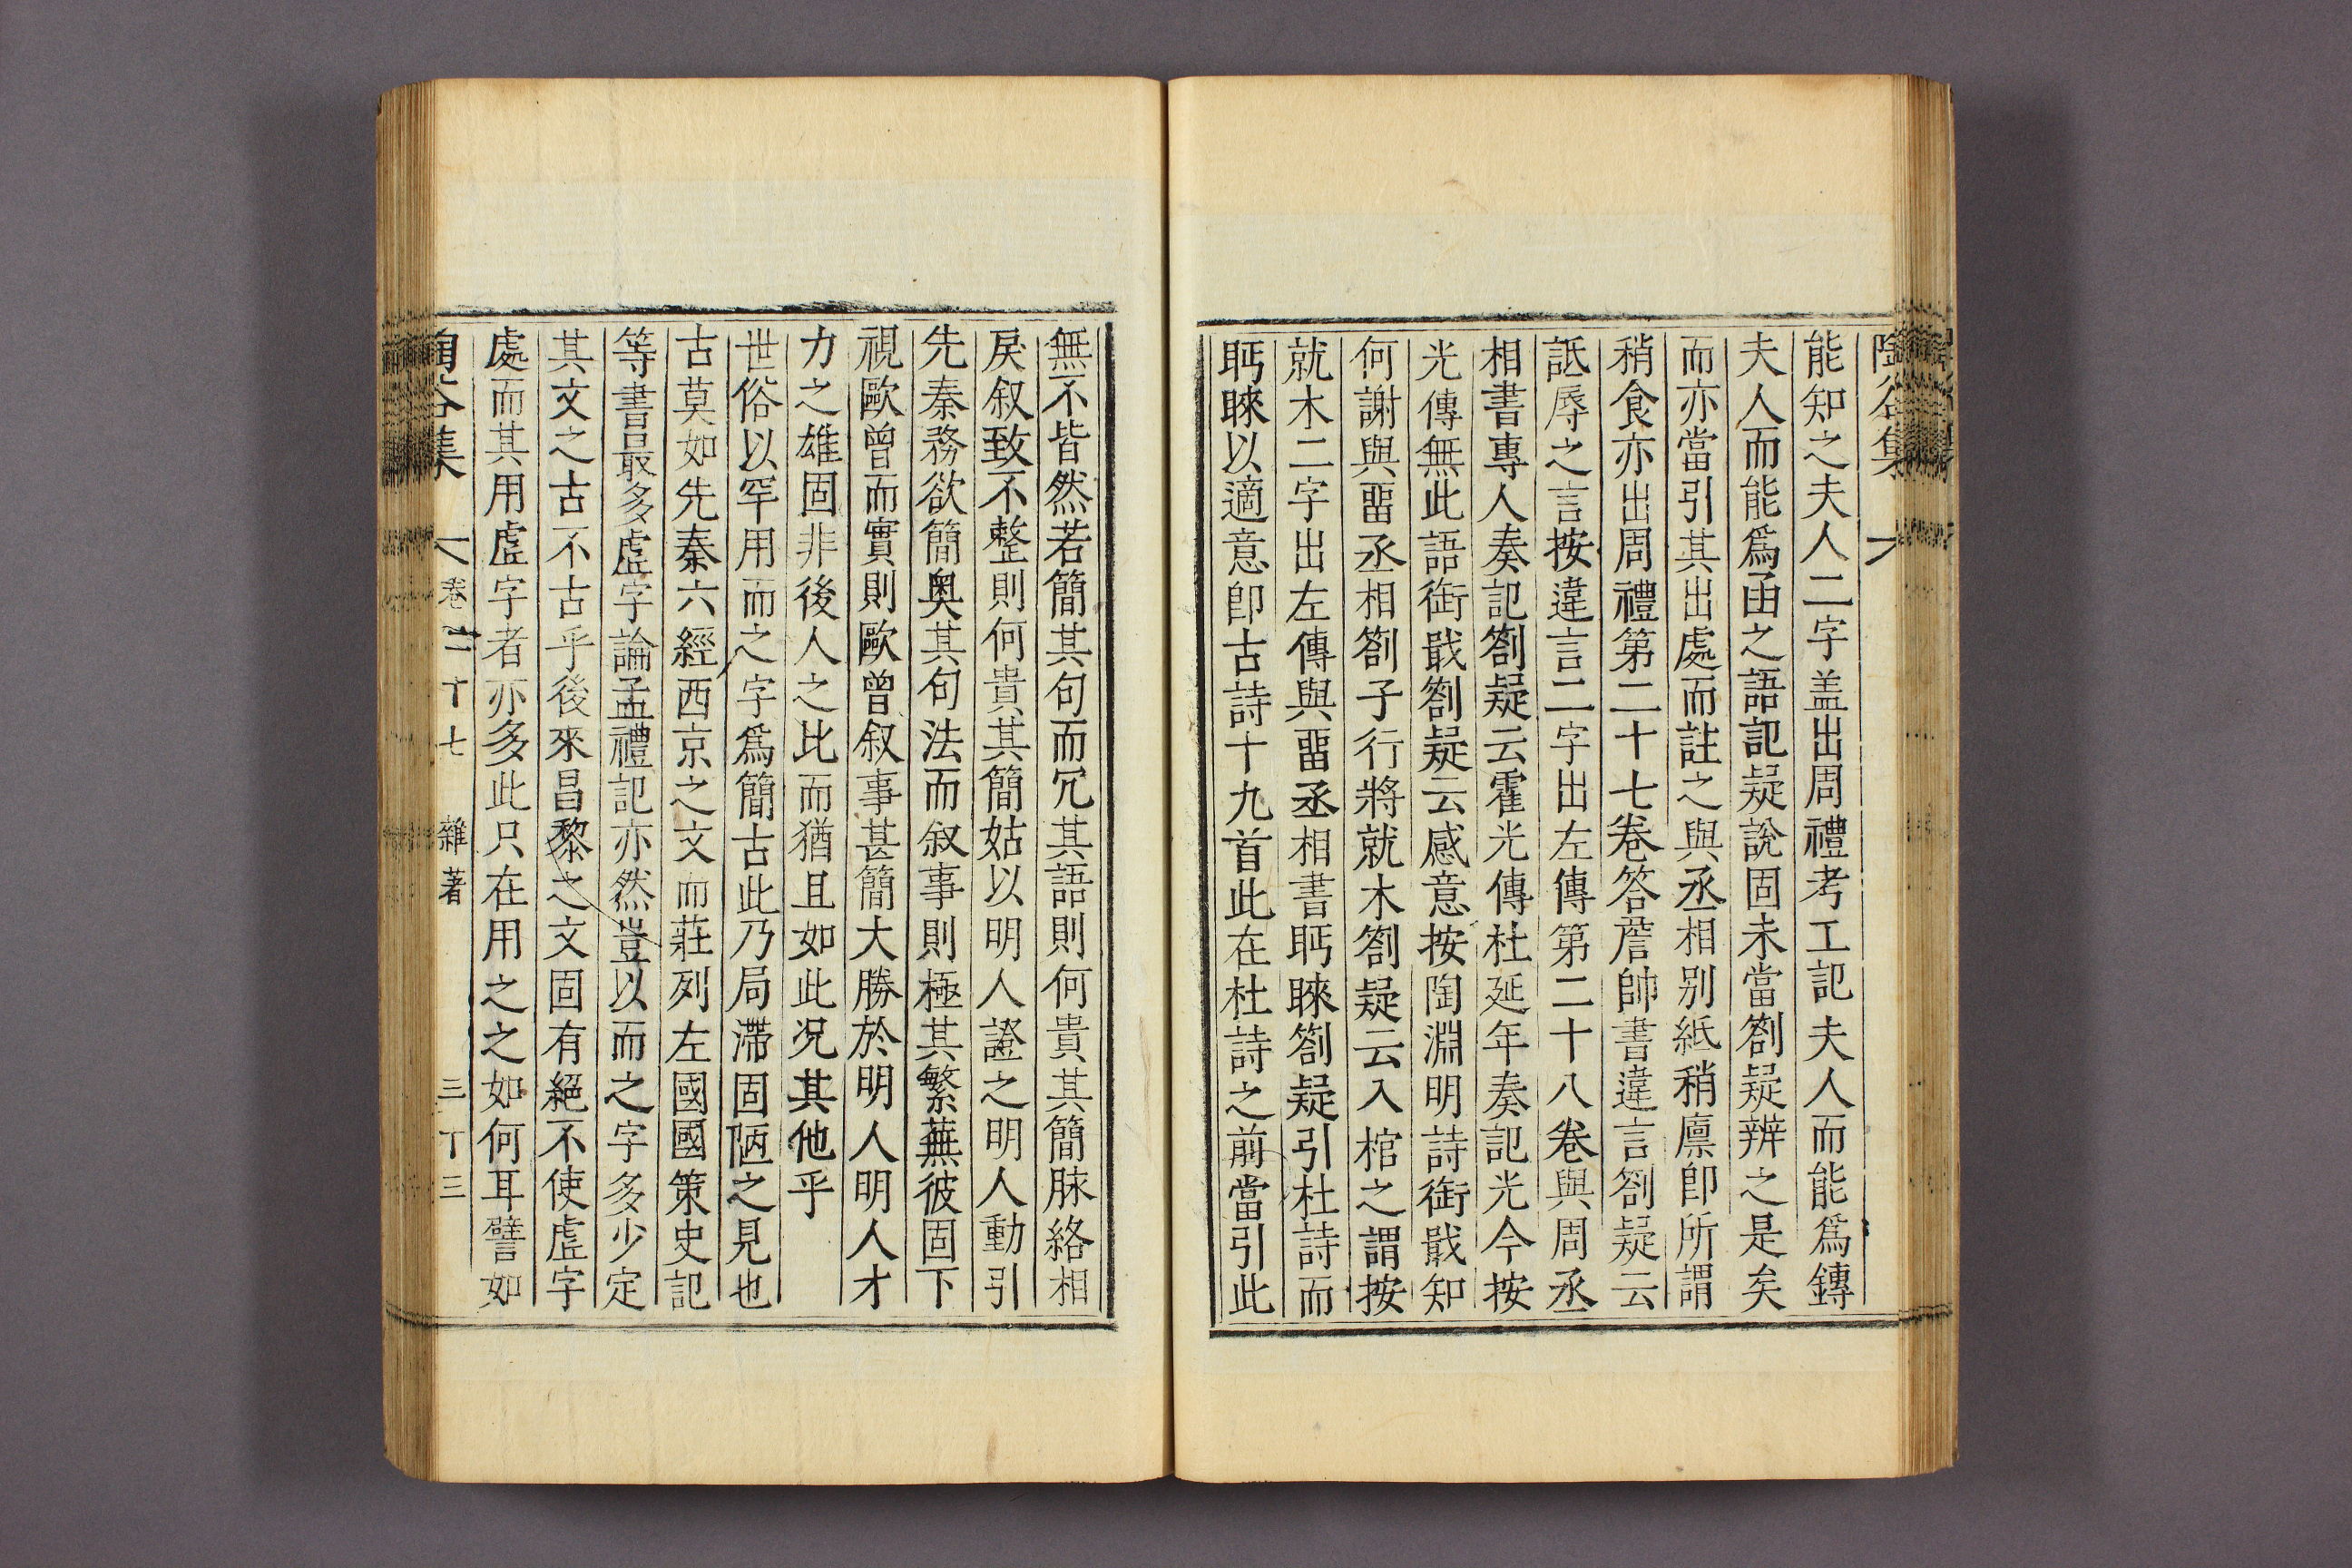 陶谷集
能知之夫人二字盖出周禮考工記夫人而能爲鏄
夫人而能爲函之語記疑說固未當劄疑辨之是矣
而亦當引其出處而註之與丞相別紙稍廩卽所謂
稍食亦出周禮第二十七卷答詹帥書違言劄疑云
詆辱之言按違言二字出左傳第二十八卷與周丞
相書專人奏記劄疑云霍光傳杜延年奏記光今按
光傳無此語銜戢劄疑云感意按陶淵明詩銜戢知
何謝與畱丞相劄子行將就木劄疑云入棺之謂按
就木二字出左傳與畱丞相書眄睞劄疑引杜詩而
眄睞以適意卽古詩十九首此在杜詩之前當引此
無不皆然若簡其句而冗其語則何貴其簡脉絡相
戾叙致不整則何貴其簡姑以明人證之明人動引
先秦務欲簡奧其句法而叙事則極其繁蕪彼固下
視歐曾而實則歐曾叙事甚簡大勝於明人明人才
力之雄固非後人之比而猶且如此况其他乎
世俗以罕用而之字爲簡古此乃局滯固陋之見也
古莫如先秦六經西京之文而莊列左國國策史記
等書最多虛字論孟禮記亦然豈以而之字多少定
其文之古不古乎後來昌黎之文固有絕不使虛字
處而其用虛字者亦多此只在用之之如何耳譬如
陶谷集 卷二十七 雜著 三十三